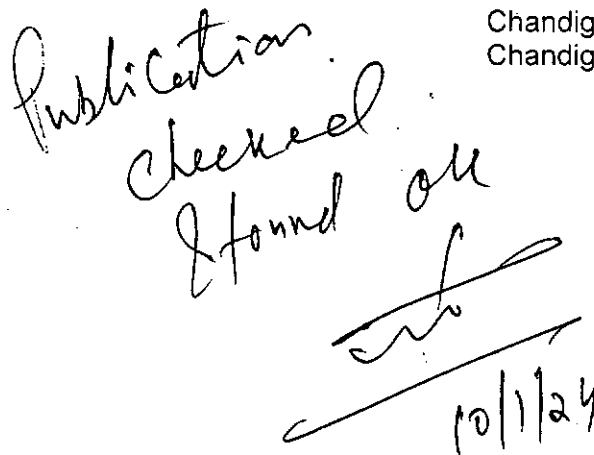 Chandig
Chandig
Publication
checked
& found ok
10/1/24